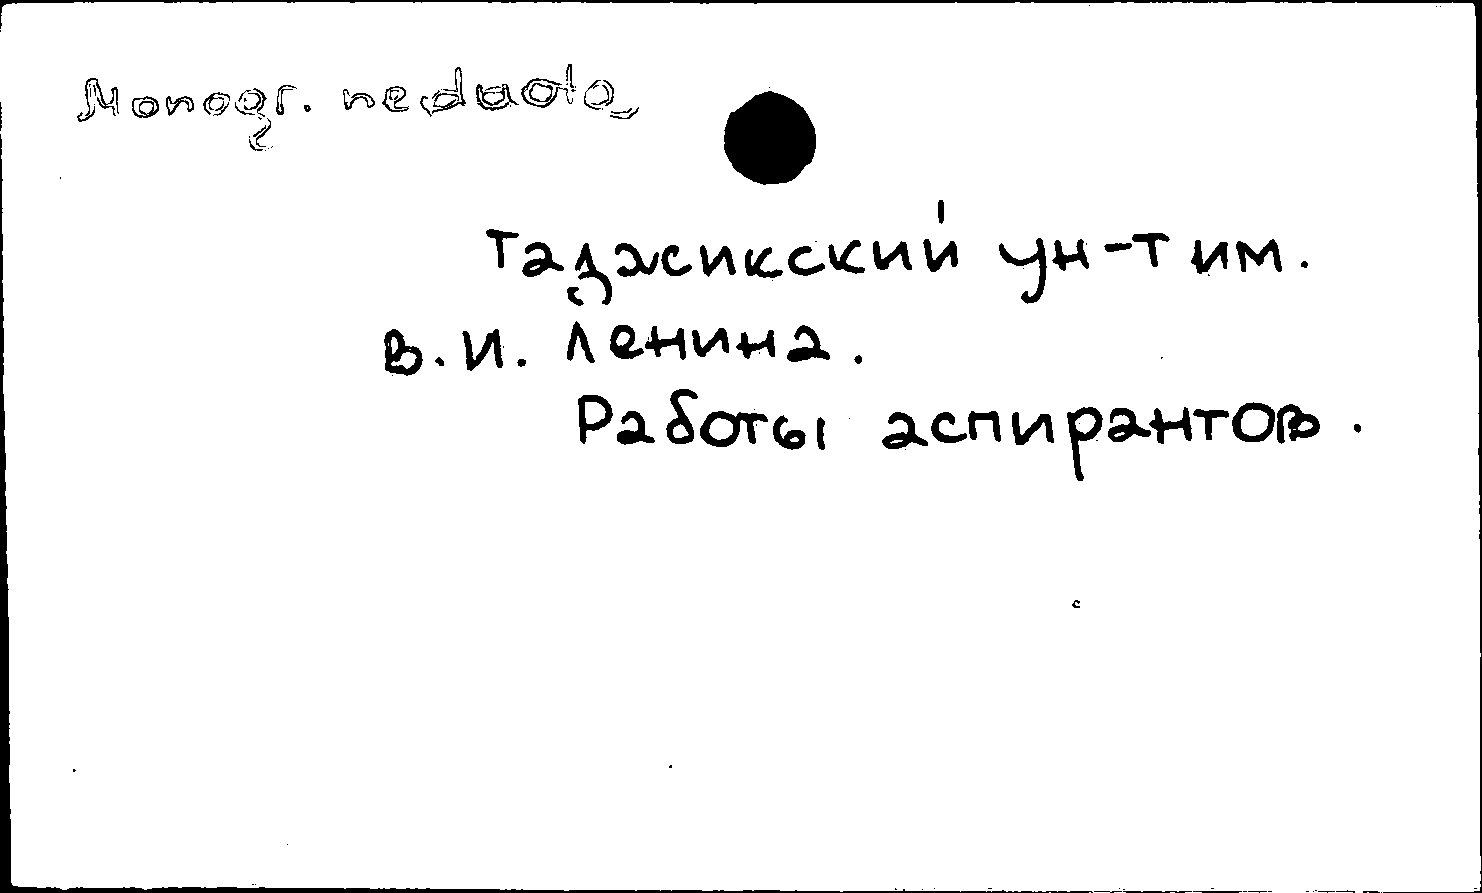 Monogr. neduota
Таджикский ун-т им.
В. И. Ленина.
Работы аспирантов.